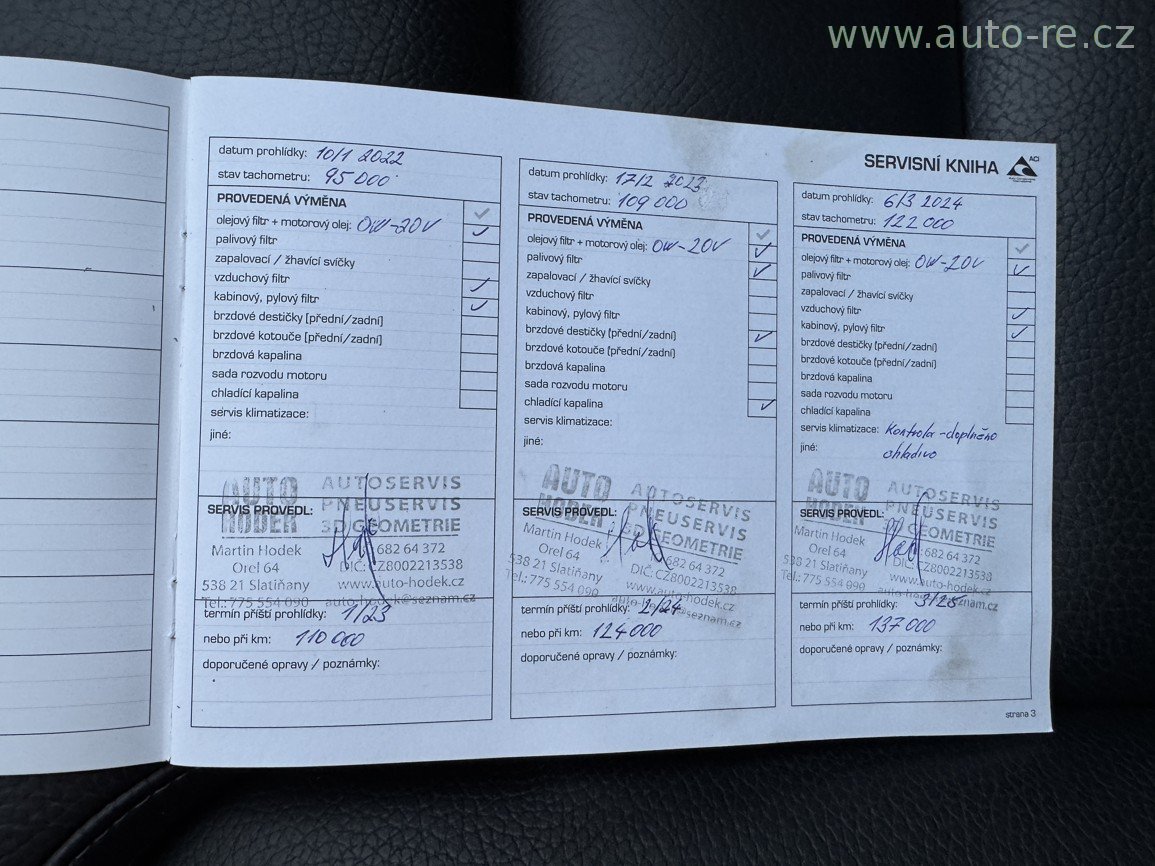 www.auto-re.cz
SERVISNÍ KNIHA
ACI
datum prohlídky: 10/1 2022
stav tachometru: 95 000
PROVEDENÁ VÝMĚNA
olejový filtr + motorový olej: 0W-20V
palivový filtr
zapalovací / žhavící svíčky
vzduchový filtr
kabinový, pylový filtr
brzdové destičky (přední/zadní)
brzdové kotouče (přední/zadní)
brzdová kapalina
sada rozvodu motoru
chladící kapalina
servis klimatizace:
jiné:
AUTO HODEK
AUTOSERVIS
PNEUSERVIS
3D GEOMETRIE
SERVIS PROVEDL:
Martin Hodek
Orel 64
538 21 Slatiňany
Tel.: 775 554 090
682 64 372
DIČ: CZ8002213538
www.auto-hodek.cz
auto-hodek@seznam.cz
termín příští prohlídky: 1/23
nebo při km: 110 000
doporučené opravy / poznámky:
datum prohlídky: 17/2 2023
stav tachometru: 109 000
PROVEDENÁ VÝMĚNA
olejový filtr + motorový olej: 0W-20V
palivový filtr
zapalovací / žhavící svíčky
vzduchový filtr
kabinový, pylový filtr
brzdové destičky (přední/zadní)
brzdové kotouče (přední/zadní)
brzdová kapalina
sada rozvodu motoru
chladící kapalina
servis klimatizace:
jiné:
AUTO HODEK
AUTOSERVIS
PNEUSERVIS
3D GEOMETRIE
SERVIS PROVEDL:
Martin Hodek
Orel 64
538 21 Slatiňany
Tel.: 775 554 090
682 64 372
DIČ: CZ8002213538
www.auto-hodek.cz
termín příští prohlídky: 2/24
nebo při km: 124 000
doporučené opravy / poznámky:
datum prohlídky: 6/3 2024
stav tachometru: 122 000
PROVEDENÁ VÝMĚNA
olejový filtr + motorový olej: 0W-20V
palivový filtr
zapalovací / žhavící svíčky
vzduchový filtr
kabinový, pylový filtr
brzdové destičky (přední/zadní)
brzdové kotouče (přední/zadní)
brzdová kapalina
sada rozvodu motoru
chladící kapalina
servis klimatizace: kontrola - doplněno
jiné: chladivo
AUTO HODEK
AUTOSERVIS
PNEUSERVIS
3D GEOMETRIE
SERVIS PROVEDL:
Martin Hodek
Orel 64
538 21 Slatiňany
Tel.: 775 554 090
682 64 372
DIČ: CZ8002213538
www.auto-hodek.cz
termín příští prohlídky: 3/25
nebo při km: 137 000
doporučené opravy / poznámky:
strana 3